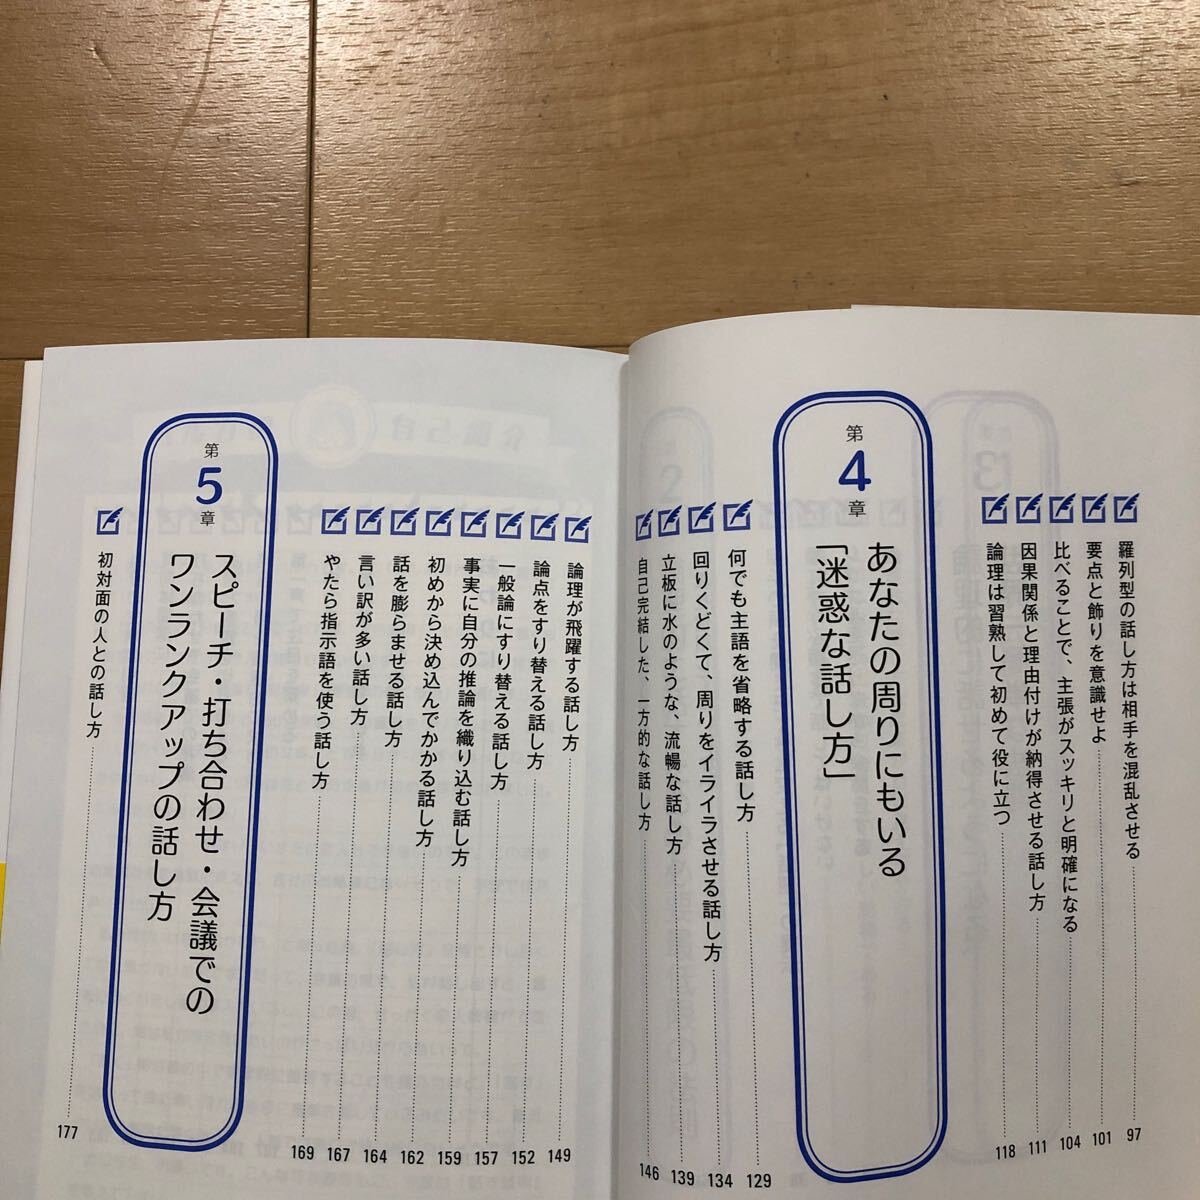 羅列型の話し方は相手を混乱させる 97
要点と飾りを意識せよ 101
比べることで、主張がスッキリと明確になる 104
因果関係と理由付けが納得させる話し方 111
論理は習熟して初めて役に立つ 118
第4章
あなたの周りにもいる
「迷惑な話し方」
何でも主語を省略する話し方 129
回りくどくて、周りをイライラさせる話し方 134
立板に水のような、流暢な話し方 139
自己完結した、一方的な話し方 146
論理が飛躍する話し方 149
論点をすり替える話し方 152
一般論にすり替える話し方 157
事実に自分の推論を織り込む話し方 159
初めから決め込んでかかる話し方 162
話を膨らませる話し方 164
言い訳が多い話し方 167
やたら指示語を使う話し方 169
第5章
スピーチ・打ち合わせ・会議での
ワンランクアップの話し方
初対面の人との話し方 177